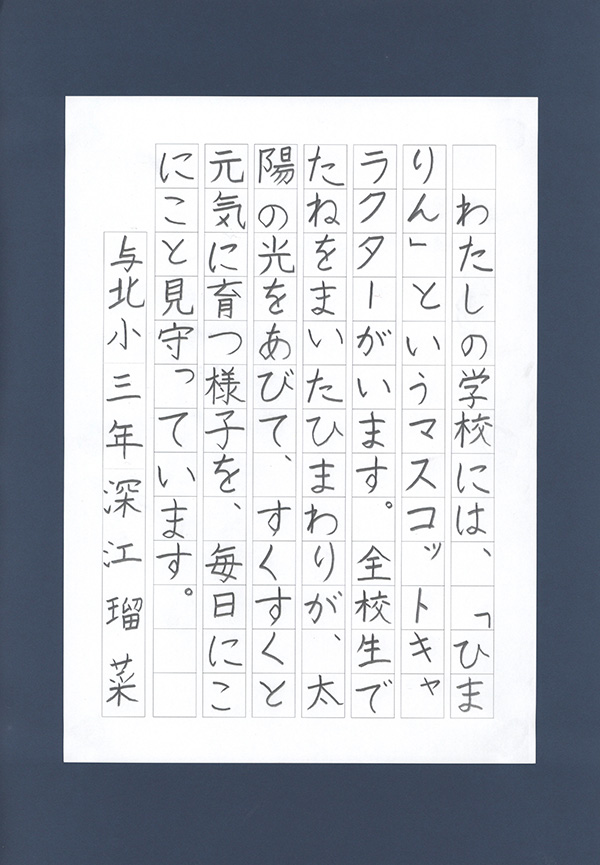 わたしの学校には、「ひま
りん」というマスコットキャ
ラクターがいます。全校生で
たねをまいたひまわりが、太
陽の光をあびて、すくすくと
元気に育つ様子を、毎日にこ
にこと見守っています。
与北小三年深江瑠菜